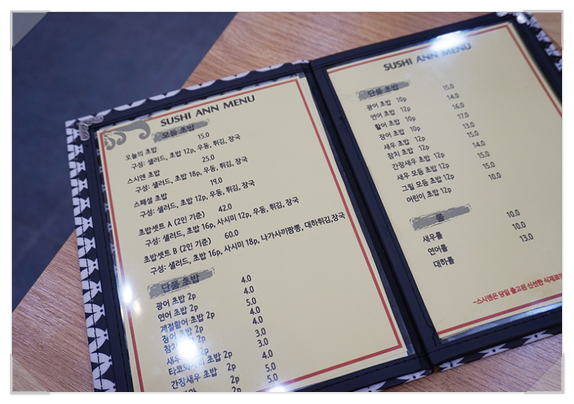 SUSHI ANN MENU
모듬 초밥
오늘의 초밥 15.0
구성: 샐러드, 초밥 12p, 우동, 튀김, 장국
스시앤 초밥 25.0
구성: 샐러드, 초밥 18p, 우동, 튀김, 장국
스페셜 초밥 19.0
구성: 샐러드, 초밥 12p, 우동, 튀김, 장국
초밥셋트 A (2인 기준) 42.0
구성: 샐러드, 초밥 16p, 사시미 12p, 우동, 튀김, 장국
초밥셋트 B (2인 기준) 60.0
구성: 샐러드, 초밥 16p, 사시미 18p, 나가사끼짬뽕, 대하튀김, 장국
단품 초밥
광어 초밥 2p 4.0
연어 초밥 2p 4.0
계절활어 초밥 2p 5.0
장어 초밥 2p 4.0
참치 4.0
새우 3.0
타코 초밥 2p 3.0
간장새우 초밥 2p 4.0
2p 5.0
2p 5.0
SUSHI ANN MENU
단품 초밥
광어 초밥 10p 15.0
연어 초밥 12p 14.0
활어 초밥 10p 16.0
장어 초밥 10p 17.0
새우 초밥 12p 13.0
참치 초밥 12p 14.0
간장새우 초밥 12p 14.0
새우 모듬 초밥 12p 15.0
그릴 모듬 초밥 12p 15.0
어린이 초밥 12p 10.0
롤
새우롤 10.0
연어롤 10.0
대하롤 13.0
~스시앤은 당일 출고된 신선한 식재료